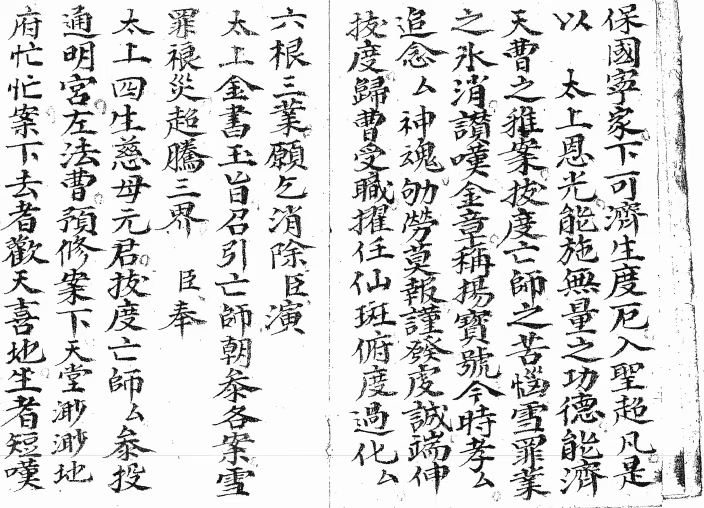 保國寧家下可濟生度厄入聖超凡是
以 太上恩光能施無量之功德能濟
天曹之雅案拔度亡師之苦惱雪罪業
之氷消讃嘆金章稱揚寳號今時孝厶
追念厶神魂劬勞莫報謹發虔誠端伸
拔度歸曹受職擢任仙班俯度過化厶
六根三業願乞消除臣演
太上金書玉旨召引亡師朝叅各案雪
罪愆災超騰三界 臣奉
太上四生慈母元君拔度亡師厶叅投
通明宮左法曹預修案下天堂渺渺地
府忙忙案下去者歡天喜地生者短嘆